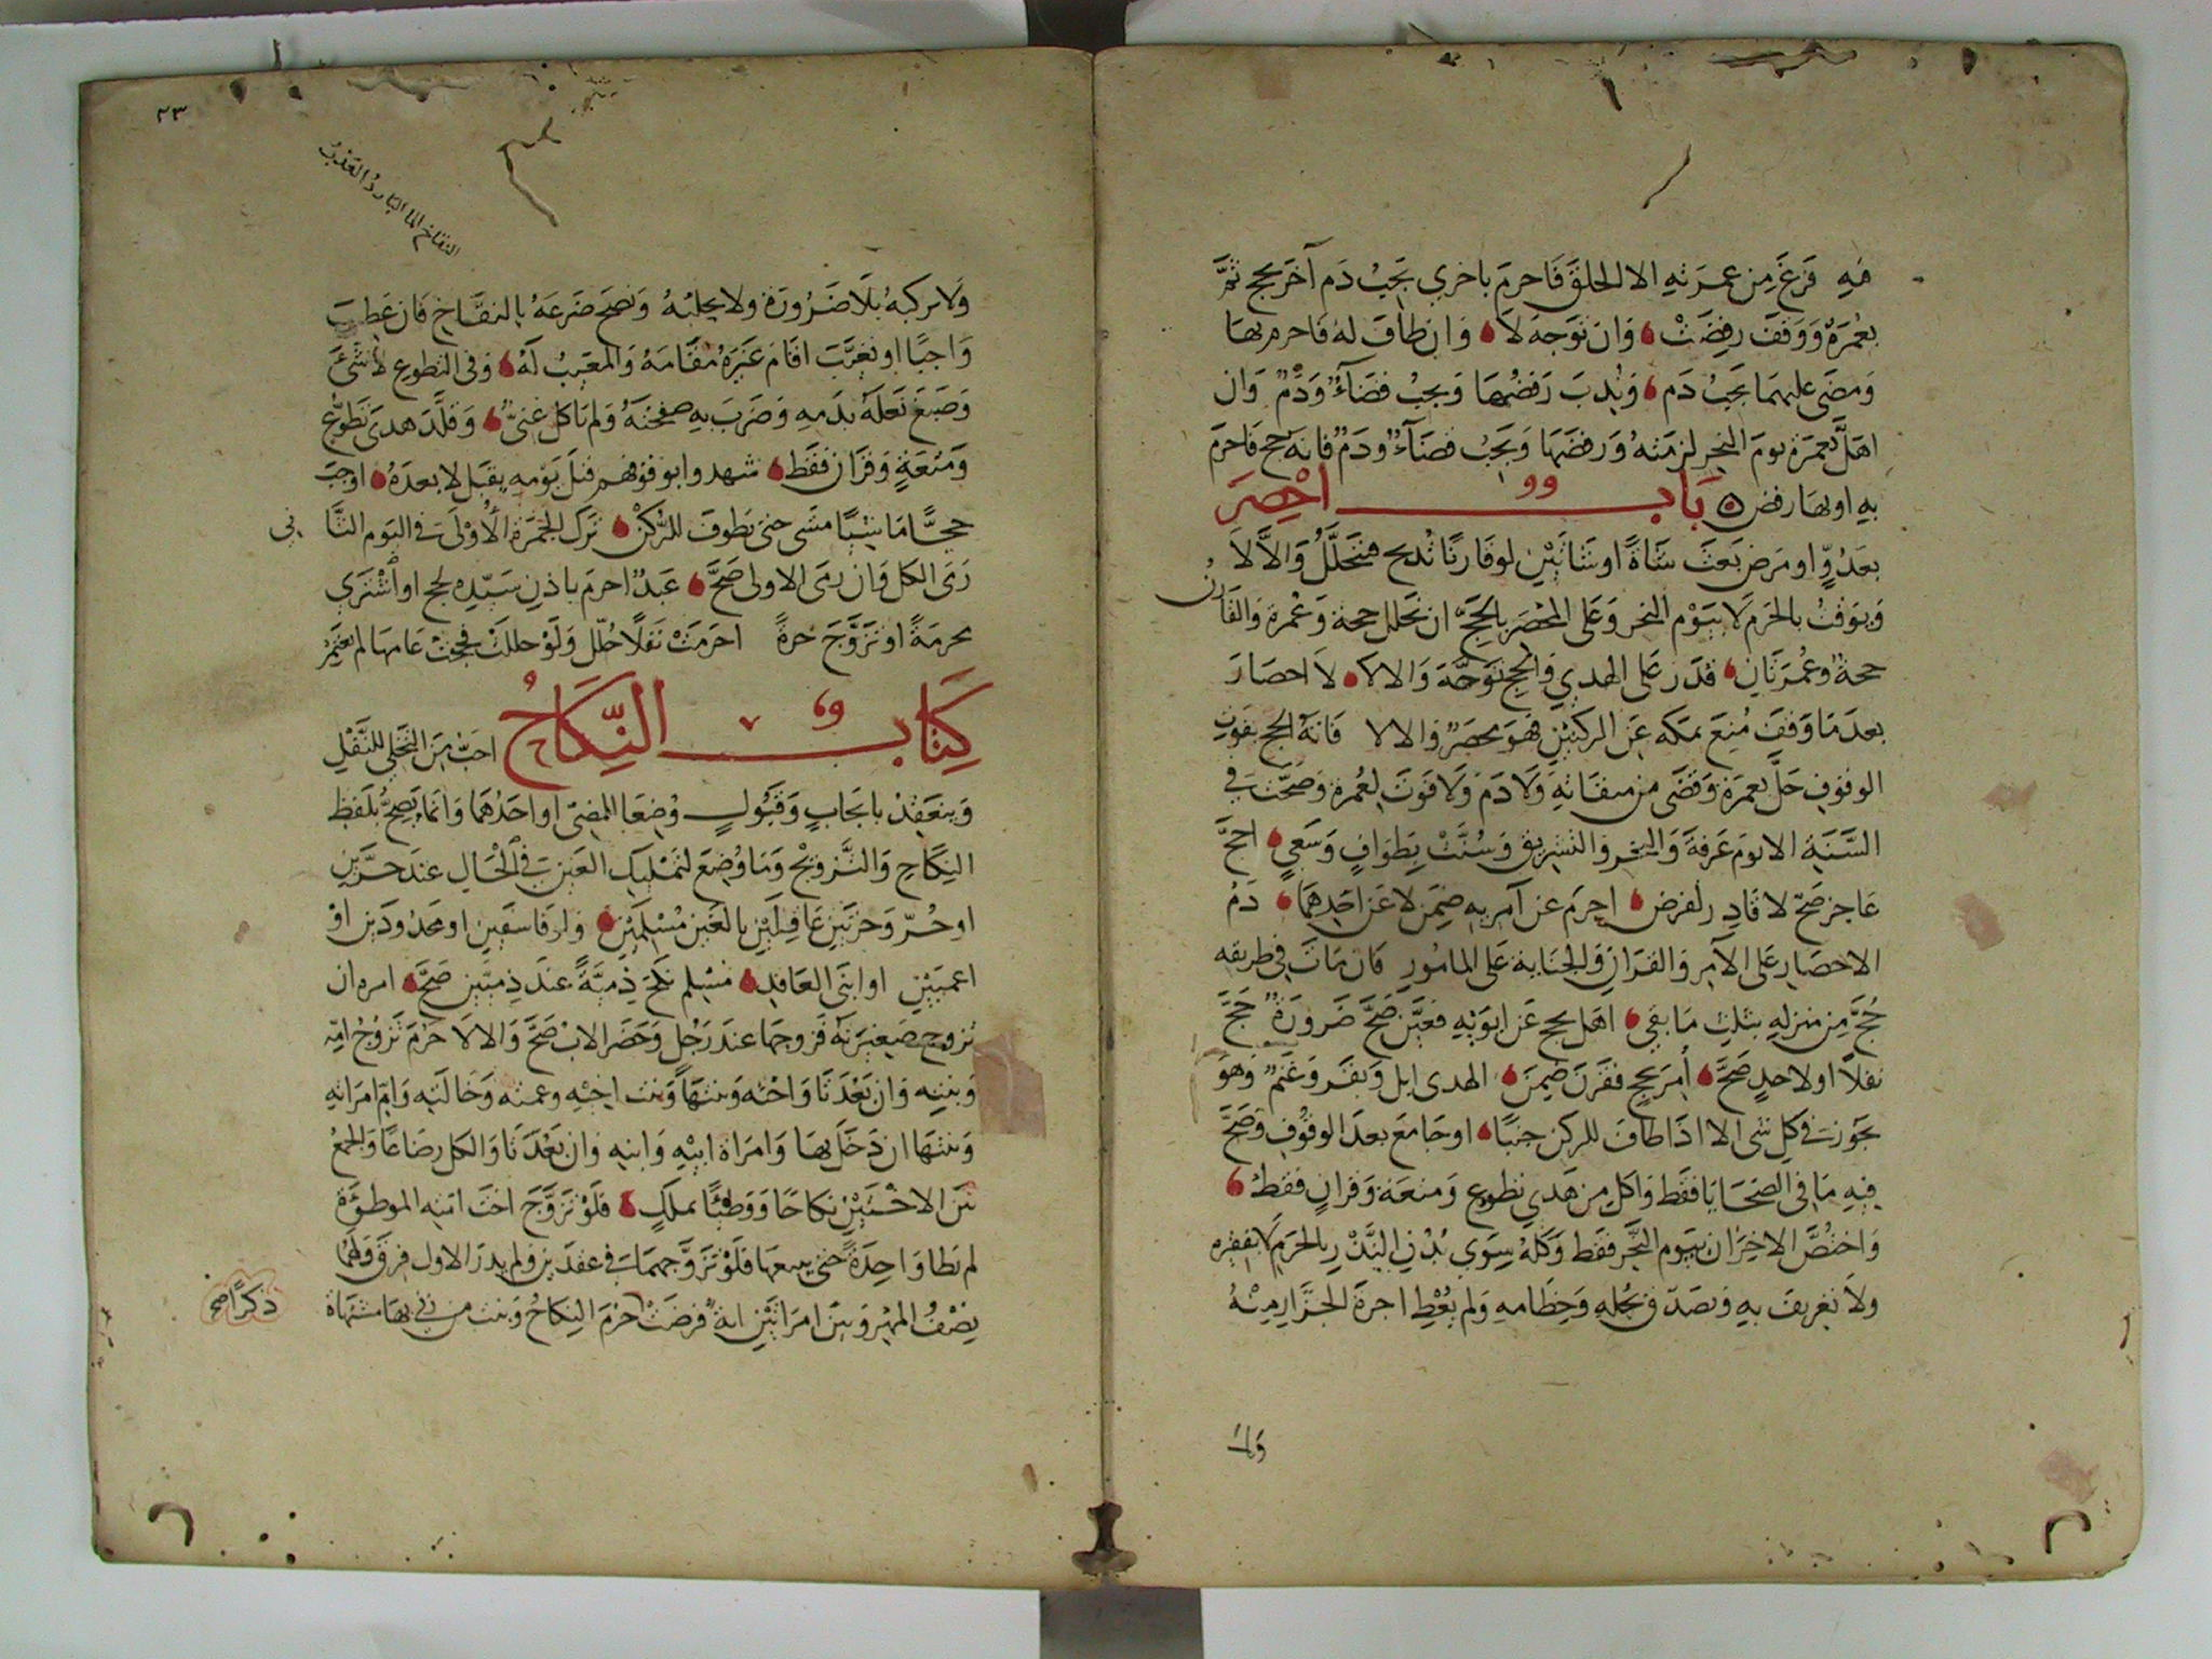 فيه فرغ من عمرته الا الحلق فاحرم باخري يجب دم آخر بحج ثم
بعمرة ووقف رفضت وان توجه لا وان طاف له فاحرم بها
ومضى عليهما يجب دم وندب رفضها ويجب قضآءٌ ودمٌ وان
اهل بعمرة يوم النحر لزمته ورفضها ويجب قضآءٌ ودم فاته حج فاحرم
به او بها رفض باب احصر
بعدوّ او مرض بعث شاةً او شاتين لو قارنا تذبح فتحلل والا لا
ويوقت بالحرم لا بيوم النحر وعلى المحصر بالحج ان تحلل حجة وعمرة والقارن
حجة وعمرتان قدر على الهدي والحج توجه والا لا لا احصار
بعد ما وقف منع بمكه عن الركنين فهو محصر والا لا فاته الحج بفوت
الوقوف حل بعمرة وقضى من ميقاته ولا دم ولا فوت لعمرة وصحت في
السنة الا يوم عرفة والنحر والتشريق وسنت بطواف وسعي احج
عاجز صح لا قادر لفرض احرم عن آمريه ضمن لا عن احدهما دم
الاحصار على الآمر والقران والجناية على المامور فان مات في طريقه
حج من منزله بثلث ما بقي اهل بحج عن ابويه فعين صح ضرورة حج
نفلا او لاحد صح أمر بحج فقرن ضمن الهدى ابل وبقر وغنم وهو
يجوز في كل شى الا اذا طاف للركن جنبًا او جامع بعد الوقوف وصح
فيه ما في الضحايا فقط واكل من هدي تطوع ومتعة وقران فقط
واختص الاخيران بيوم النحر فقط وكله سوي بدن النذر بالحرم لا بفقيره
ولا تعريف به وتصدق بجله وخطامه ولم يعط اجرة الجزار منه
ولا
٢٣
النقاخ الما البارد العذب
ولا يركبه بلا ضرورة ولا يحلبه ونضح ضرعه بالنقاخ فان عطب
واجبًا او تعيب اقام غيره مقامه والمعيب له وفى التطوع لا شئ
وصبغ نعله بدمه وضرب به صفحته ولم ياكل غنى وقلد هدى تطوع
ومتعة وقران فقط شهدوا بوقوفهم قبل يومه يقبل لا بعده اوجب
حجًّا ماشيًا مشى حتى يطوف للركن ترك الجمرة الأولى في اليوم الثا
ني
رمى الكل وان رمى الاولى صح عبد احرم باذن سيده لحج او اشتري
محرمة او تزوج حرة احرمت نفلا حلل ولو حللت فحجت عامها لم تعتمر
كتاب النكاح احب من التخلي للنفل
وينعقد بايجاب وقبول وضعا للمضي او احدهما وانما يصح بلفظ
النكاح والتزويج وما وضع لتمليك العين في الحال عند حرين
او حر وحرتين عاقلين بالغين مسلمين ولو فاسقين او محدودين او
اعميين او ابني العاقد مسلم نكح ذمية عند ذميين صح امره ان
يزوج صغيرته فزوجها عند رجل وحضر الاب صح والا لا حرم تزوج امه
وبنته وان بعدتا واخته وبنتها وبنت اخيه وعمته وخالته وام امراته
وبنتها ان دخل بها وامراة ابيه وابنه وان بعدتا والكل رضاعًا والجمع
بين الاختين نكاحًا ووطئًا بملك فلو تزوج اخت امته الموطوءة
لم يطا واحدة حتى يبيعها فلو تزوجهما في عقدين ولم يدر الاول فرق ولهما
نصف المهر وبين امراتين اية فرضت حرم النكاح وبنت من زنى بها مشتهاة
ذكرًا صح